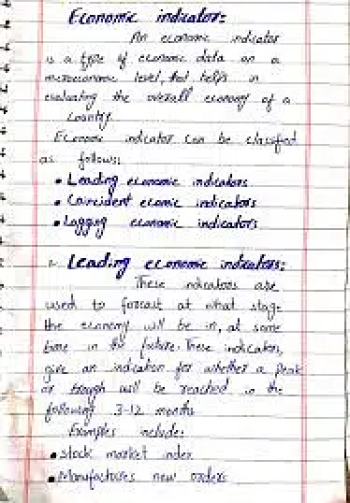 Economic indicators:
An economic indicator
is a type of economic data on a
microeconomic level, that helps in
evaluating the overall economy of a
country.
Economic indicator can be classified
as follows:
• Leading economic indicators
• Coincident ecomic indicators
• Lagging economic indicators
Leading economic indicators:
These indicators are
used to forcast at what stage
the economy will be in, at some
time in the future. These indicators,
give an indication for whether a peak
or trough will be reached in the
following 3-12 months
Examples include:
• Stock market index
• Manufactures new orders